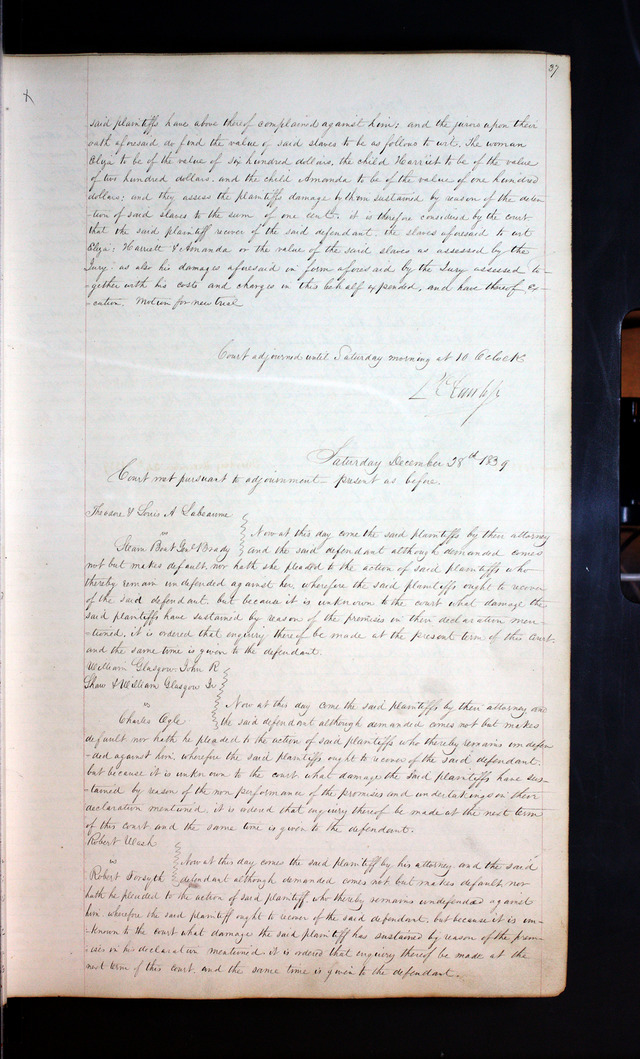 37
X
said plaintiffs have above thereof complained against him; and the jurors upon their
oath aforesaid do find the value of said slaves to be as follows to wit. The woman
Eliza to be of the value of six hundred dollars, the child Harriet to be of the value
of two hundred dollars, and the child Amanda to be of the value of one hundred
dollars; and they assess the plaintiffs damage by them sustained by reason of the deten-
-tion of said slaves to the sum of one cent. it is therefore considered by the court
that the said plaintiff recover of the said defendant, the slaves aforesaid to wit
Eliza; Harriett & Amanda or the value of the said slaves as assessed by the
Jury: as also his damages aforesaid in form aforesaid by the Jury assessed to-
-gether with his costs and charges in this behalf expended, and have thereof Ex-
-cution. Motion for new trial
Court adjourned until Saturday morning at 10 Oclock
Saturday December 28th 1839
Court met pursuant to adjournment present as before.
Theodore & Louis A Labeaume
vs
Steam Boat Genl Brady
Now at this day come the said plaintiffs by their attorney
and the said defendant although demanded comes
not but makes default, nor hath she pleaded to the action of said plaintiffs who
thereby remain undefended against her, wherefore the said plaintiffs ought to recover
of the said defendant. but because it is unknown to the court what damage the
said plaintiffs have sustained by reason of the premises in their declaration men
-tioned, it is ordered that enquiry thereof be made at the present term of this Court.
and the same time is given to the defendant.
William Glasgow, John R
Shaw & William Glasgow Jr
vs
Charles Ogle
Now at this day come the said plaintiffs by their attorney and
the said defendant although demanded comes not but makes
default nor hath he pleaded to the action of said plaintiffs who thereby remains undefen
-ded against him, wherefore the said plaintiffs ought to recover of the said defendant.
but because it is unknown to the court what damage the said plaintiffs have sus-
-tained by reason of the non performance of the promises and undertakings in their
declaration mentioned. it is orderd that enquiry thereof be made at the next term
of this court and the same time is given to the defendant.
Robert Wash
vs
Robert Forsyth
Now at this day comes the said plaintiff by his attorney and the said
defendant although demanded comes not but makes default nor
hath he pleaded to the action of said plaintiff who thereby remains undefended against
him wherefore the said plaintiff ought to recover of the said defendant. but because it is un-
-known to the court what damage the said plaintiff has sustained by reason of the prem-
-ises in his declaration mentioned it is ordered that enquiry thereof be made at the
next term of this court. and the same time is given to the defendant.